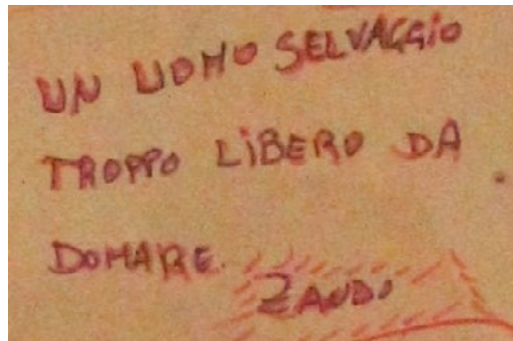 UN UOMO SELVAGGIO
TROPPO LIBERO DA
DOMARE.
ZANDO